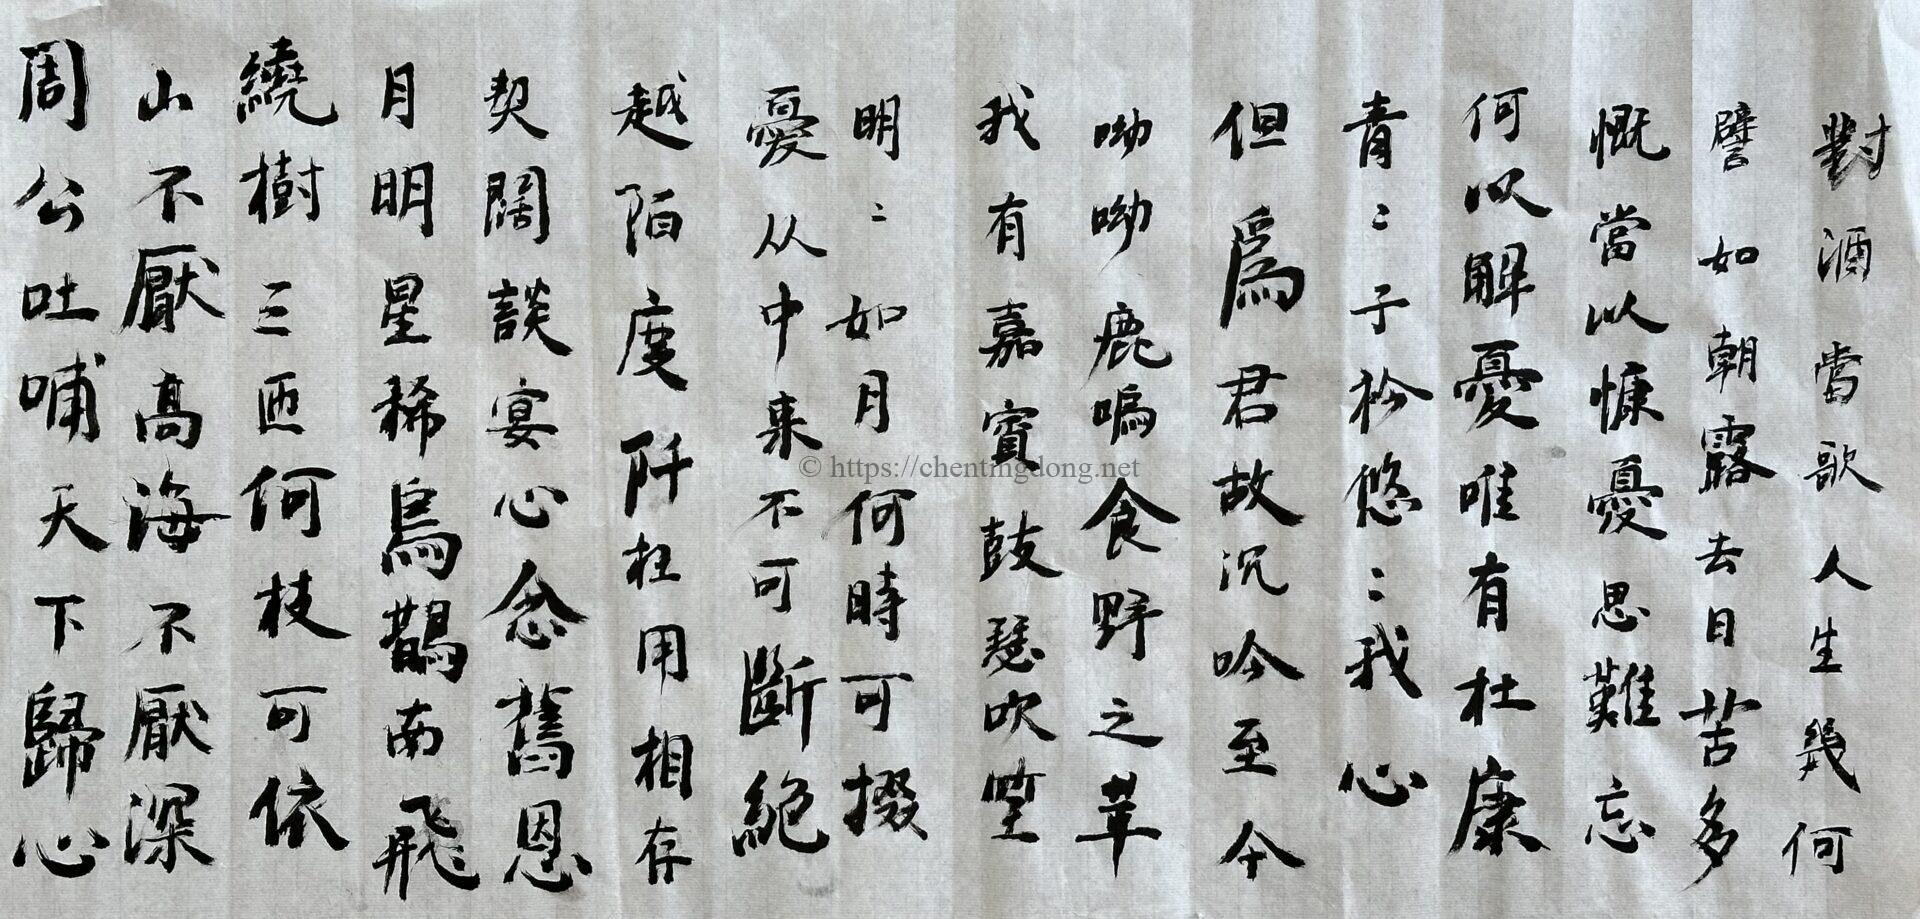 對酒當歌人生幾何
譬如朝露去日苦多
慨當以慷憂思難忘
何以解憂唯有杜康
青〻子衿悠〻我心
但爲君故沉吟至今
呦呦鹿鳴食野之苹
我有嘉賓鼓瑟吹笙
明〻如月何時可掇
憂从中来不可斷絕
越陌度阡枉用相存
契闊談宴心念舊恩
月明星稀烏鵲南飛
繞樹三匝何枝可依
山不厭高海不厭深
周公吐哺天下歸心
© https://chentingdong.net